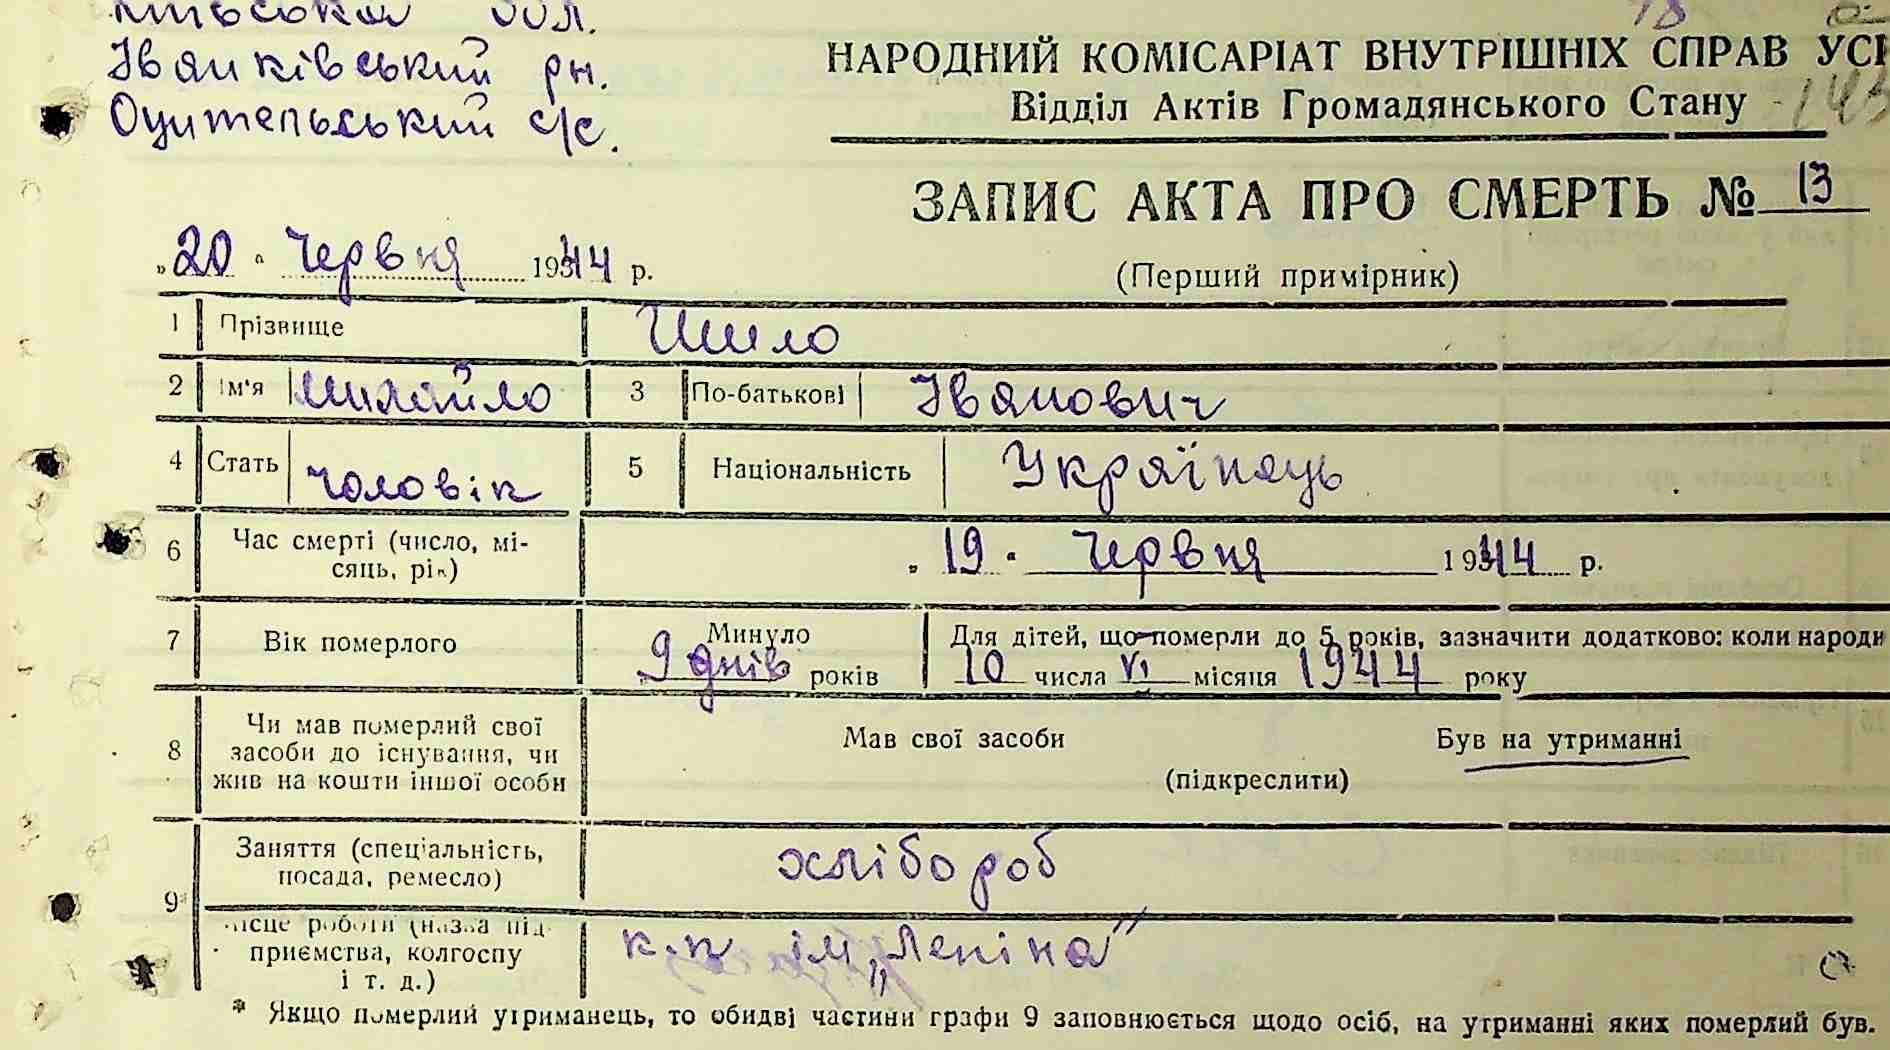 Київської обл.
Іванківський рн.
Оцительський с/с.
НАРОДНИЙ КОМІСАРІАТ ВНУТРІШНІХ СПРАВ УСР
Відділ Актів Громадянського Стану
143
ЗАПИС АКТА ПРО СМЕРТЬ № 13
„20" Червня 1944 р.
(Перший примірник)
1 Прізвище Шило
2 Ім'я Михайло 3 По-батькові Іванович
4 Стать чоловік 5 Національність Українець
6 Час смерті (число, мі-
сяць, рік) „19" Червня 1944 р.
7 Вік померлого Минуло 9 днів років Для дітей, що померли до 5 років, зазначити додатково: коли народи
10 числа VI місяця 1944 року
8 Чи мав померлий свої
засоби до існування, чи
жив на кошти іншої особи
Мав свої засоби Був на утриманні
(підкреслити)
9* Заняття (спеціальність,
посада, ремесло) хлібороб
Місце роботи (назва під-
приємства, колгоспу
і т. д.) к.п. ім „Леніна"
* Якщо померлий утриманець, то обидві частини графи 9 заповнюється щодо осіб, на утриманні яких померлий був.